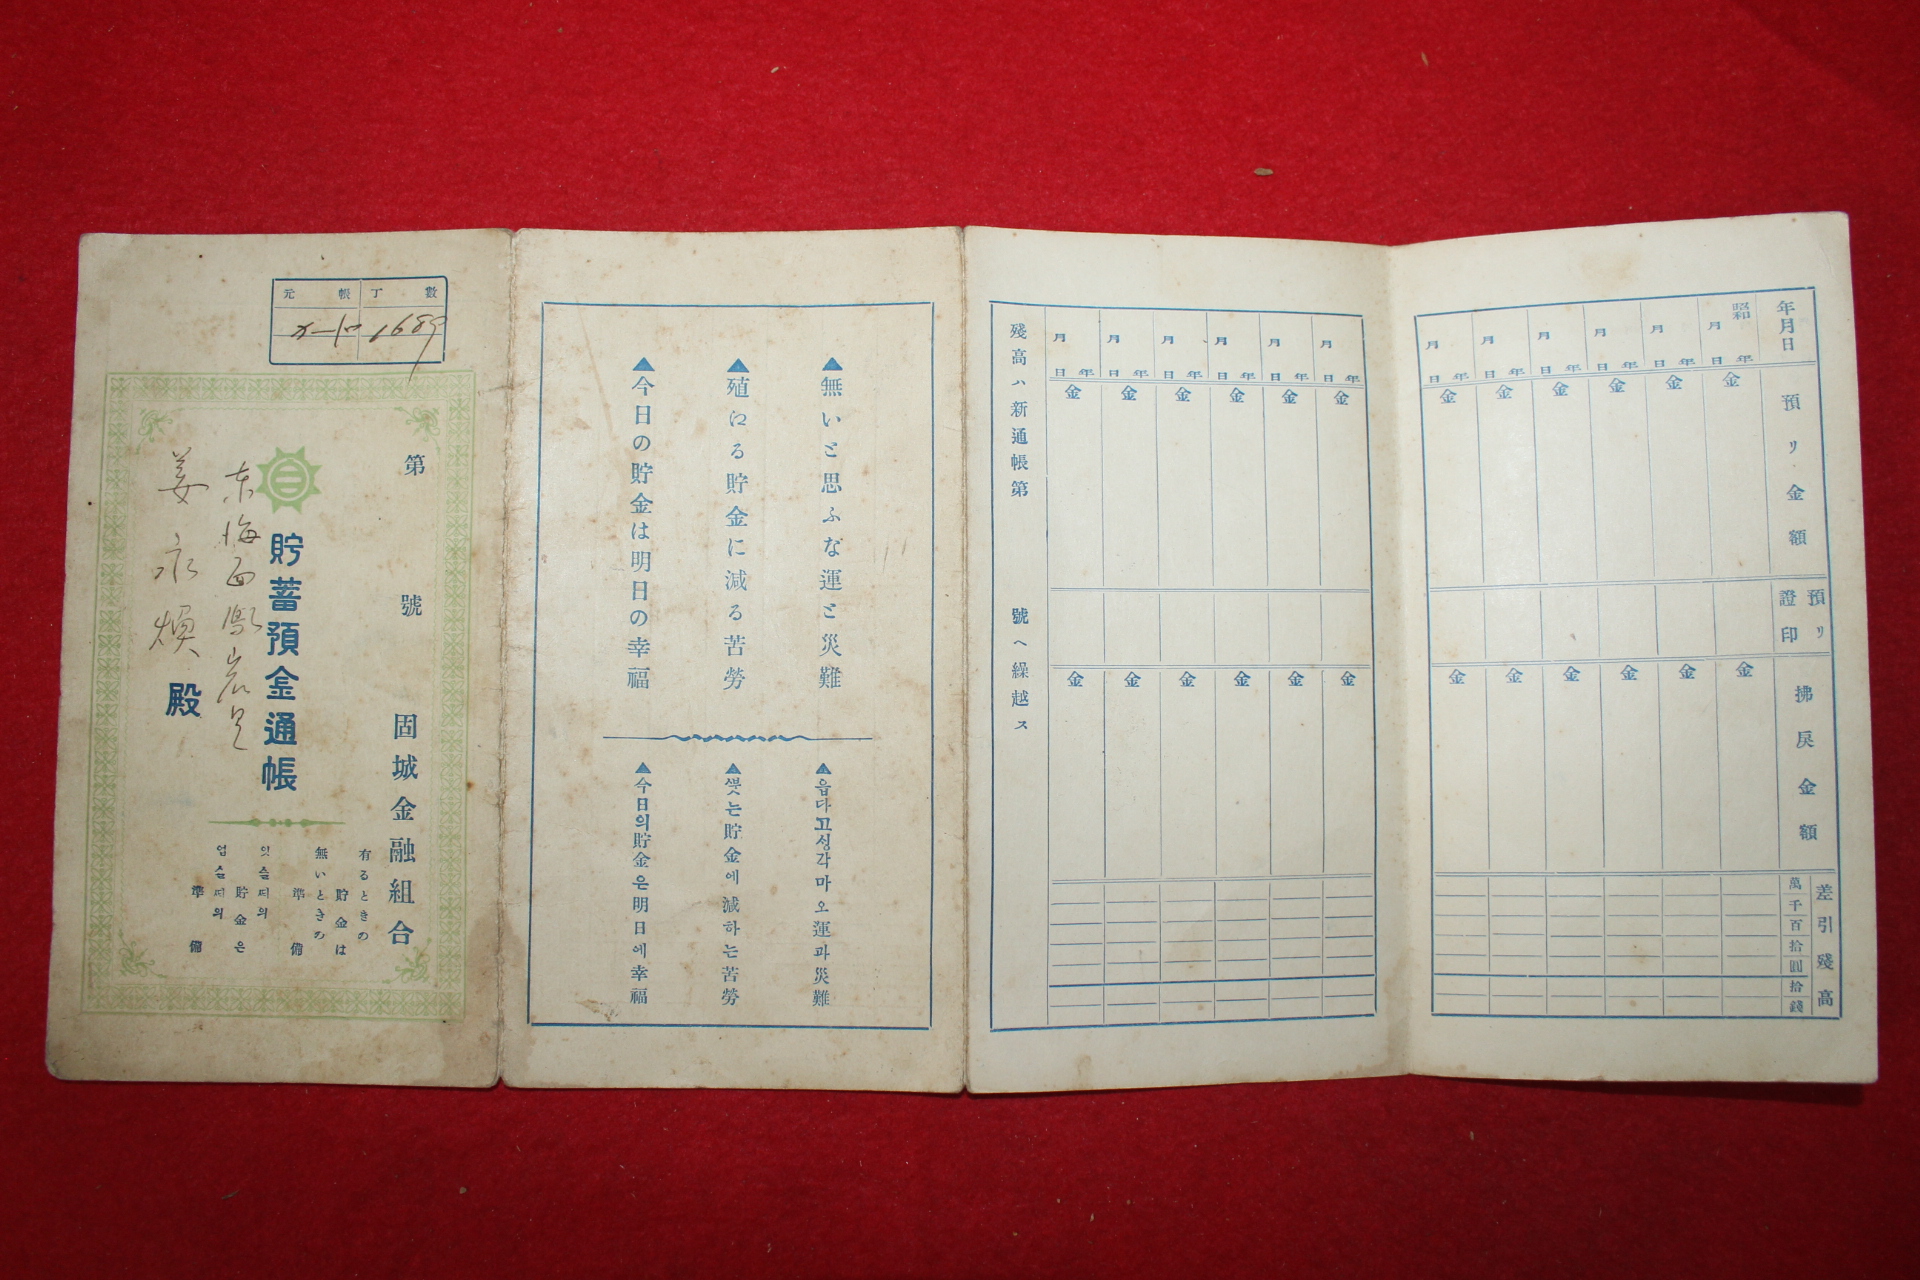 元帳丁數
1689
第 號
固城金融組合
貯蓄預金通帳
東海面
姜永煥 殿
有るときの
貯金は
無いときの
準備
잇슬때의
貯金은
업슬때의
準備
▲無いと思ふな運と災難
▲殖える貯金に減る苦勞
▲今日の貯金は明日の幸福
▲읍다고성각마오運과災難
▲는貯金에減하는苦勞
▲今日의貯金은明日에幸福
年月日
昭和 年 月 日
年 月 日
年 月 日
年 月 日
年 月 日
年 月 日
預リ金額
金 金 金 金 金 金
預リ證印
拂戾金額
金 金 金 金 金 金
差引殘高
萬千百拾圓拾錢
年 月 日
年 月 日
年 月 日
年 月 日
年 月 日
年 月 日
金 金 金 金 金 金
金 金 金 金 金 金
殘高ハ新通帳第 號ヘ繰越ス